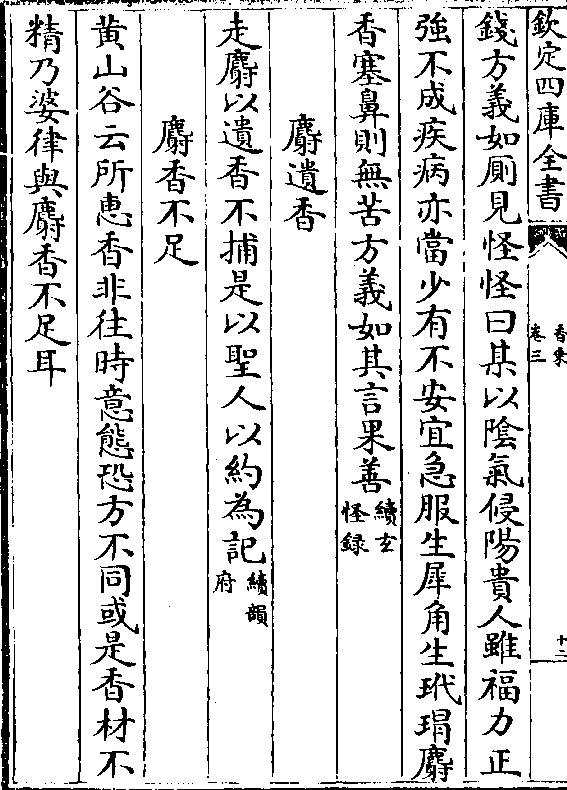 欽定四庫全書
香乘
卷三
十二
錢方義如厠見怪怪曰某以陰氣侵陽貴人雖福力正
強不成疾病亦當少有不安宜急服生犀角生玳瑁麝
香塞鼻則無苦方義如其言果善續玄怪録
麝遺香
走麝以遺香不捕是以聖人以約為記續韻府
麝香不足
黄山谷云所恵香非往時意態恐方不同或是香材不
精乃婆律與麝香不足耳